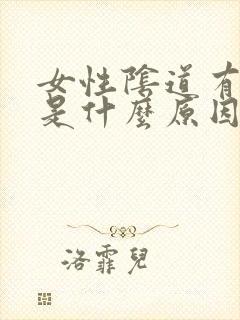 女性陰道有
是什麼原因
洛霏兒